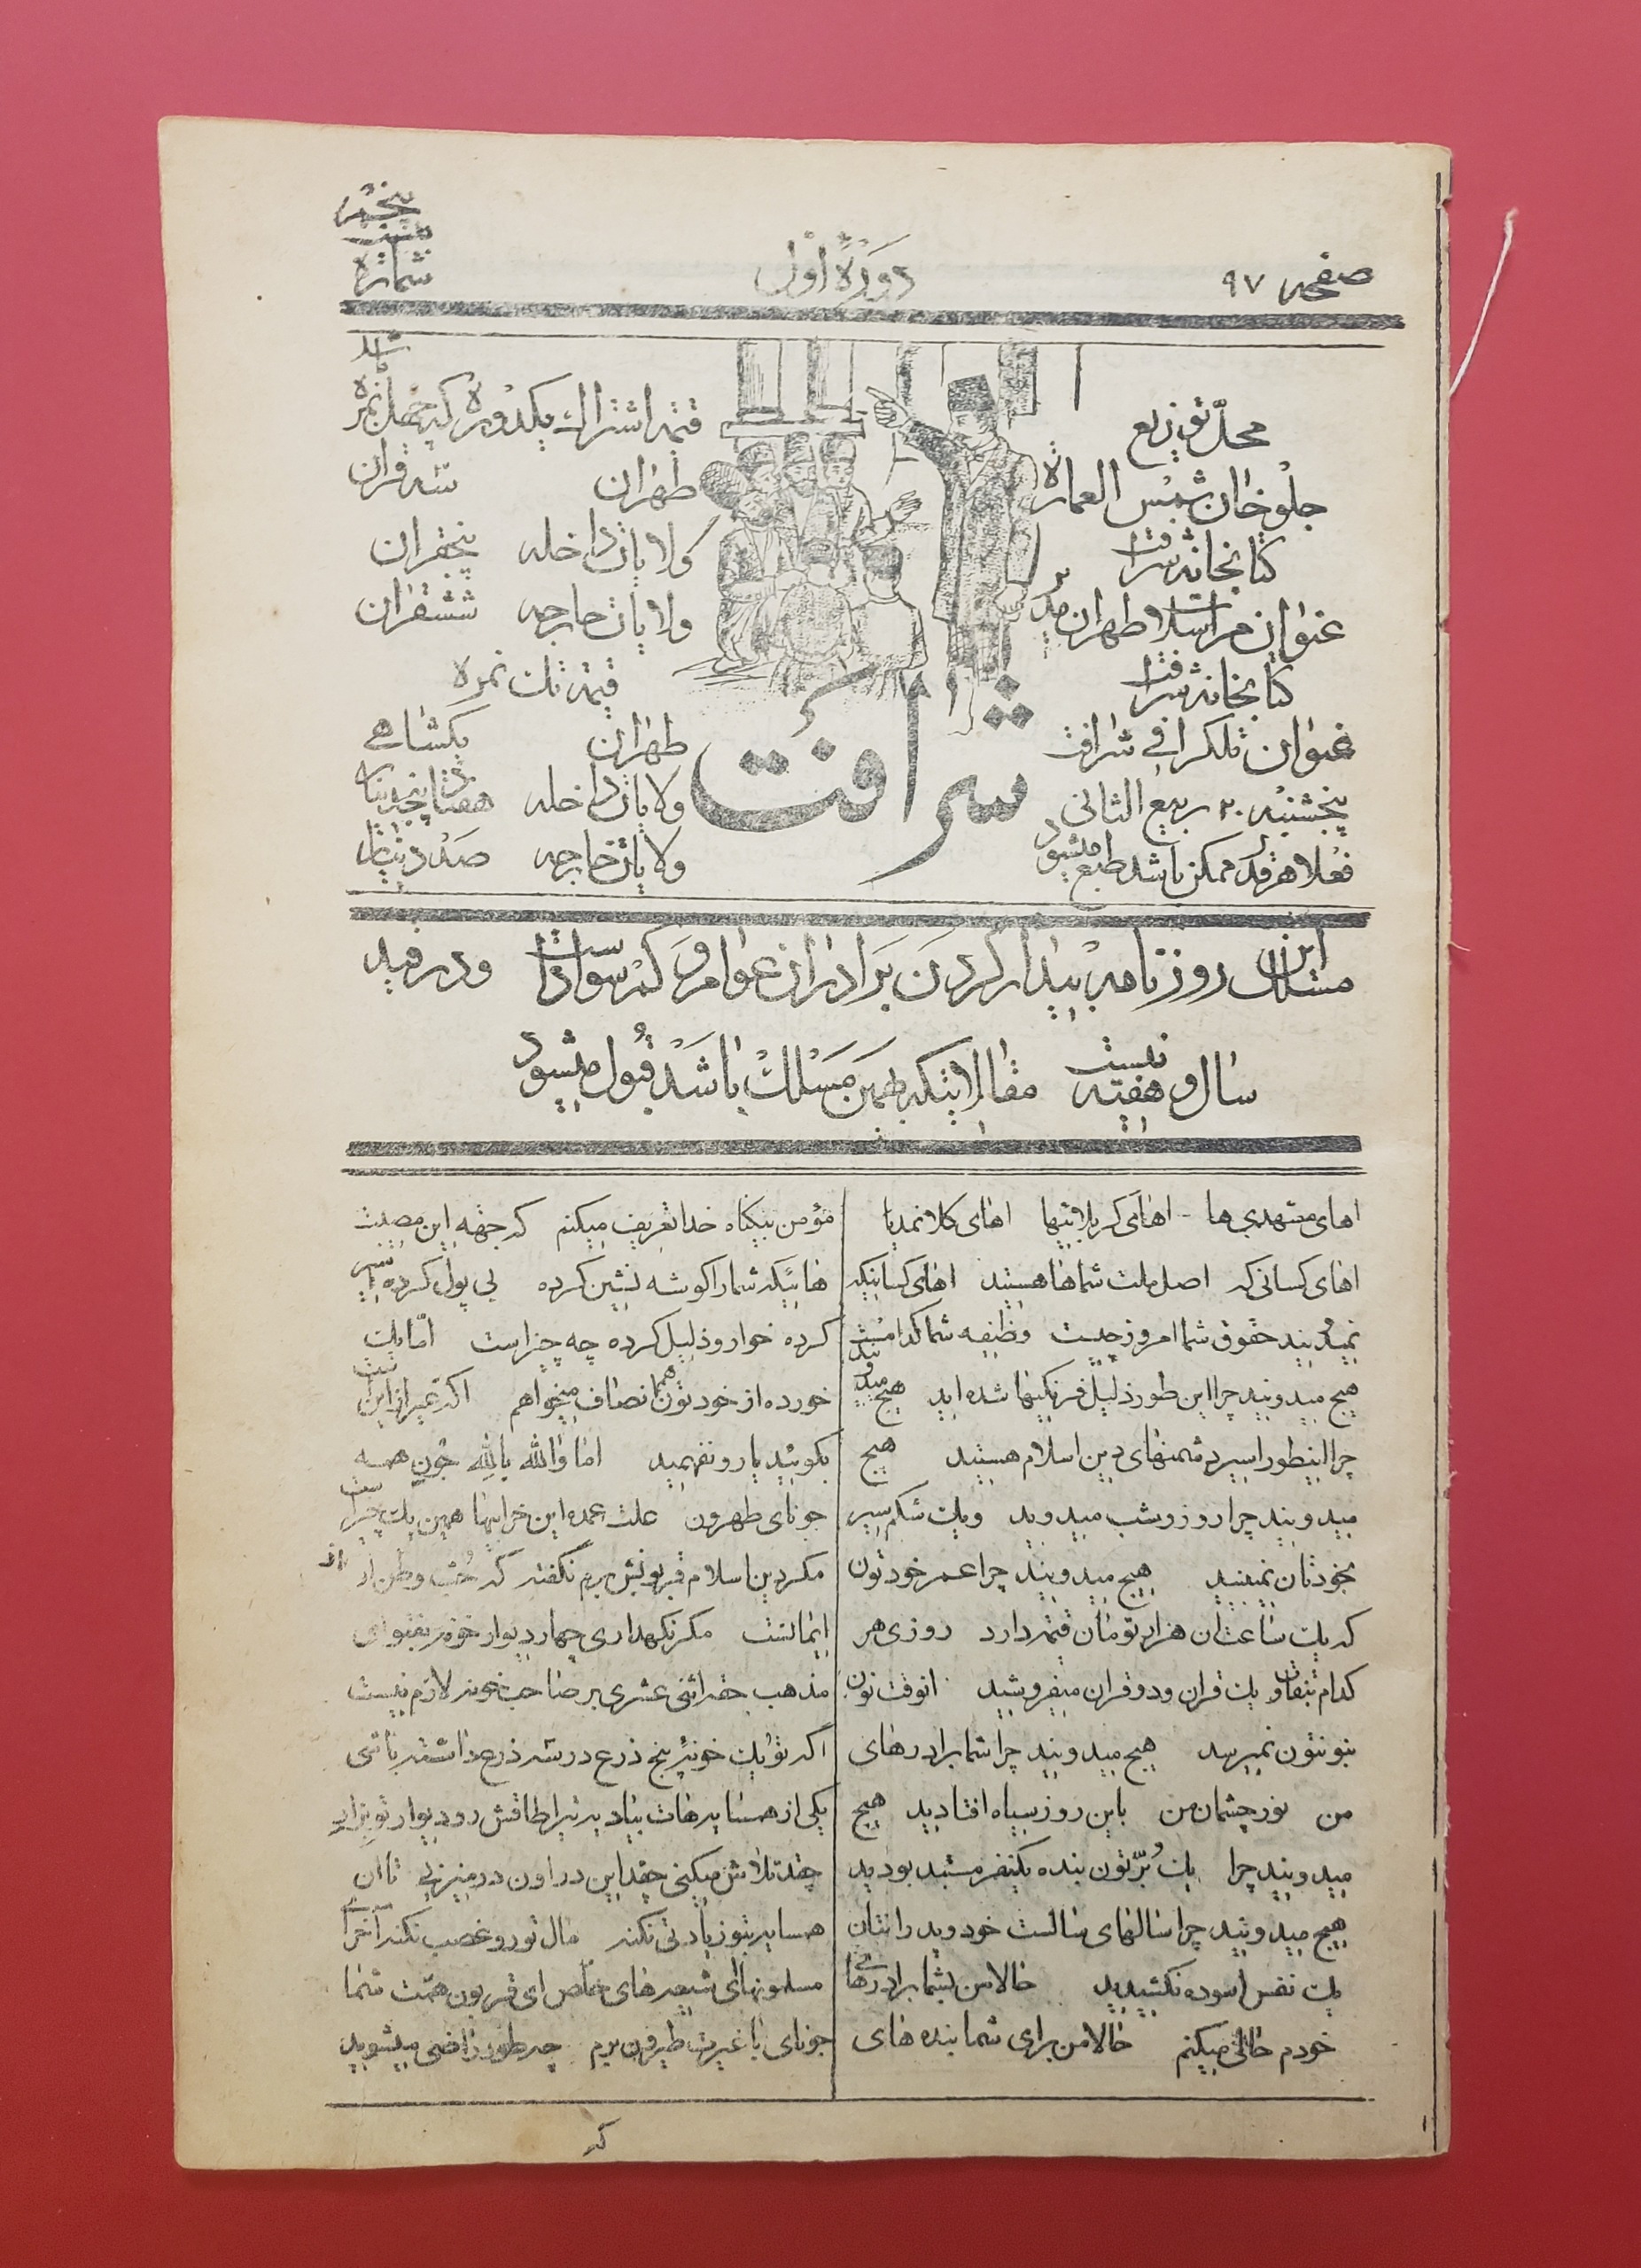 صفحه ۹۷
دوره اول
شماره بیست پنجم
محلّ توزیع
جلوخان شمس العماره
کتابخانه شرافت
عنوان مراسلات طهران
کتابخانه شرافت
عنوان تلگرافی شرافت
پنجشنبه ۲۰ ربیع الثانی
فعلا هر قدر ممکن باشد طبع میشود
شرافت
قیمة اشتراك یکدوره که چهل نمره باشد
طهران سه قران
ولایات داخله پنجقران
ولایات خارجه ششقران
قیمة تك نمره
طهران یکشاهی
ولایات داخله هفتاد پنجدینار
ولایات خارجه صد دینار
مسلك این روزنامه بیدار کردن برادران عوام و کم سواد است ودرقید
سال و هفته نیست مقالاتیکه بهمین مسلك باشد قبول میشود
اهای مشهدی ها - اهای کربلائیها اهای کلانمدیا
اهای کسانی که اصل ملت شماها هستید اهای کسانیکه
نمیدونید حقوق شما امروز چیست وظیفه شما کدامست
هیچ میدونید چرا این طور ذلیل فرنگیها شده اید هیچ میدونید
چرا اینطور اسیر دشمنهای دین اسلام هستید هیچ
میدونید چرا روز و شب میدوید ویك شکم سیر
بخودتان نمیبینید هیچ میدونید چرا عمر خودتون
که یك ساعت ان هزار تومان قیمة دارد روزی هر
کدام یك قران ودو قران میفروشید انوقت نون
بنونتون نمیرسد هیچ میدونید چرا شما برادرهای
من نور چشمان من باین روز سیاه افتادید هیچ
میدونید چرا یك بُرّتون بنده یکنفر مستبد بودید
هیچ میدونید چرا سالهای سالست خودوید رانتان
یك نفس اسوده نکشیدید حالا من بشما برادرهای
خودم حالی میکنم حالا من برای شما بنده های
مؤمن بیگناه خدا تعریف میکنم که جهة این مصیبت
هائیکه شما را کوشه نشین کرده بی پول کرده اسیر
کرده خوار وذلیل کرده چه چیز است امّا یك
خورده از خودتون هم انصاف میخواهم اگر غیر از این است
بگوئید یارو نفهمید اما والله بالله جون همه
جونای طهرون علت عمده این خرابیها همین یك چیز است
مگر دین اسلام قربونش برم نگفته که حُب وطن از
ایمانست مگر نگهداری چهار دیوار خونه بفتوای
مذهب حقه اثنی عشری بر صاحب خونه لازم نیست
اگر تو یك خونه پنج ذرع در سه ذرع داشته باشی
یکی از همسایه هات بیاد یه تیر اطاقش رو دیوار تو بزاره
چقد تلاش میکنی چقد این در اون در میزنی تا ان
همسایه بتو زیادتی نکند مال تورو غصب نکند آخر ای
مسلمونهای شیعه های خالص ای قربون همت شما
جونای با غیرت طهرون برم چه طور راضی میشوید
که